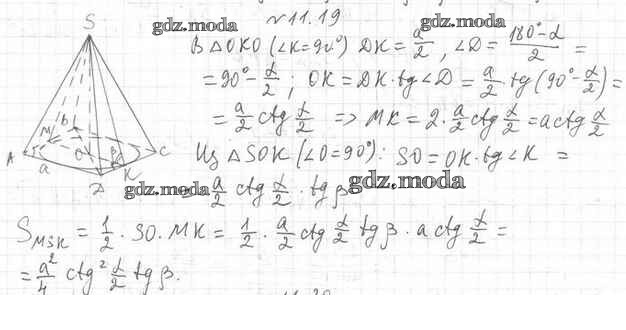 gdz.moda
gdz.moda
№11.19
В △ОКD (∠K=90°) DK = a/2, ∠D = (180°-α)/2 =
= 90° - α/2; OK = DK·tg∠D = a/2 tg(90° - α/2) =
= a/2 ctg α/2 => MK = 2·a/2 ctg α/2 = a ctg α/2
Из △SOK (∠O=90°): SO = OK·tg∠K =
= a/2 ctg α/2 · tg β.
gdz.moda
gdz.moda
S MSK = 1/2 · SO · MK = 1/2 · a/2 ctg α/2 tg β · a ctg α/2 =
= a²/4 ctg² α/2 tg β.
S
M
B
A
O
β
C
K
a
D